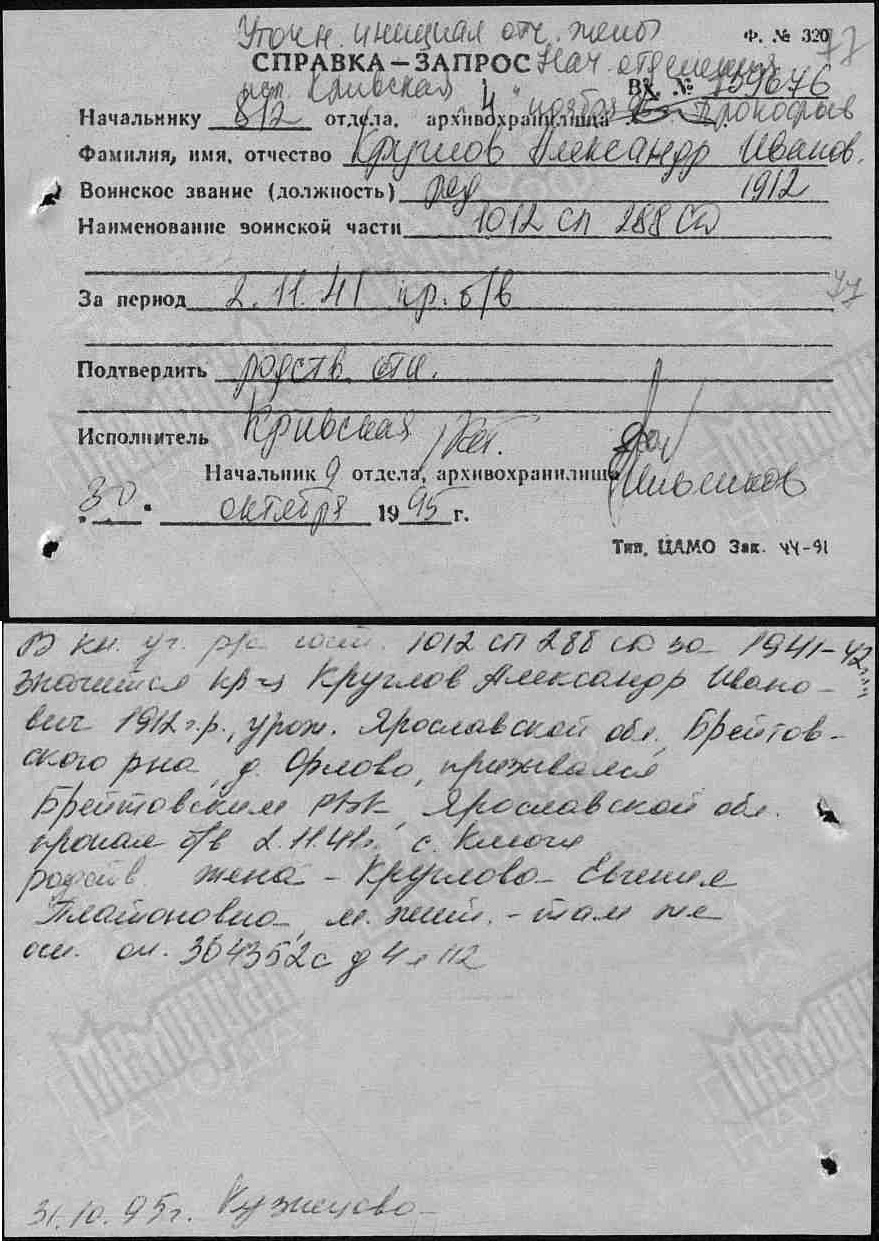 Уточн. инициал отч. жены
Ф. № 320
77
СПРАВКА—ЗАПРОС Нач. отделения
исп. Кривская
Вх. № 159676
"4" ноября 95 г. Прокофьев
Начальнику 8/2 отдела, архивохранилища
Фамилия, имя, отчество Круглов Александр Иванов.
Воинское звание (должность) ряд 1912
Наименование воинской части 1012 сп 288 сд
За период 2.11.41 пр. б/в
77
Подтвердить родств. отн.
Исполнитель Кривская
Начальник 9 отдела, архивохранилища
"30" октября 1995 г.
Тип. ЦАМО Зак. 44-91
В кн. уч. р/с сост. 1012 сп 288 сд за 1941-42 гг
значится кр-ц Круглов Александр Ивано-
вич 1912 г.р., урож. Ярославской обл., Брейтов-
ского р-на, д. Орлово, призывался
Брейтовским РВК, Ярославской обл.
пропал б/в 2.11.41г., с. Ключи
родств. жена - Круглова Евгения
Платоновна, м. жит. - там же
осн. оп. 304352с д 4 л 112
31.10.95г. Кузнецова
МЕМОРИАЛ
НАРОДА